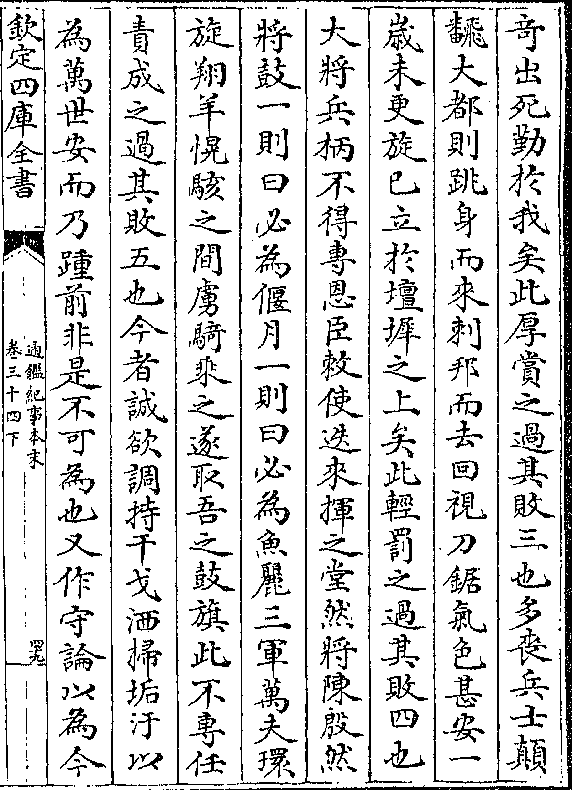 奇出死勤於我矣此厚賞之過其敗三也多喪兵士顛
飜大都則跳身而來刺邦而去回視刀鋸氣色甚安一
歲未更旋已立於壇墀之上矣此輕罰之過其敗四也
大將兵柄不得專恩臣敕使迭來揮之堂然將陳殷然
將鼓一則曰必為偃月一則曰必為魚麗三軍萬夫環
旋翔羊愰駭之間虜騎乗之遂取吾之鼓旗此不專任
責成之過其敗五也今者誠欲調持干戈洒掃垢汙以
為萬世安而乃踵前非是不可為也又作守論以為今
欽定四庫全書
通鑑紀事本末
卷三十四下
四九